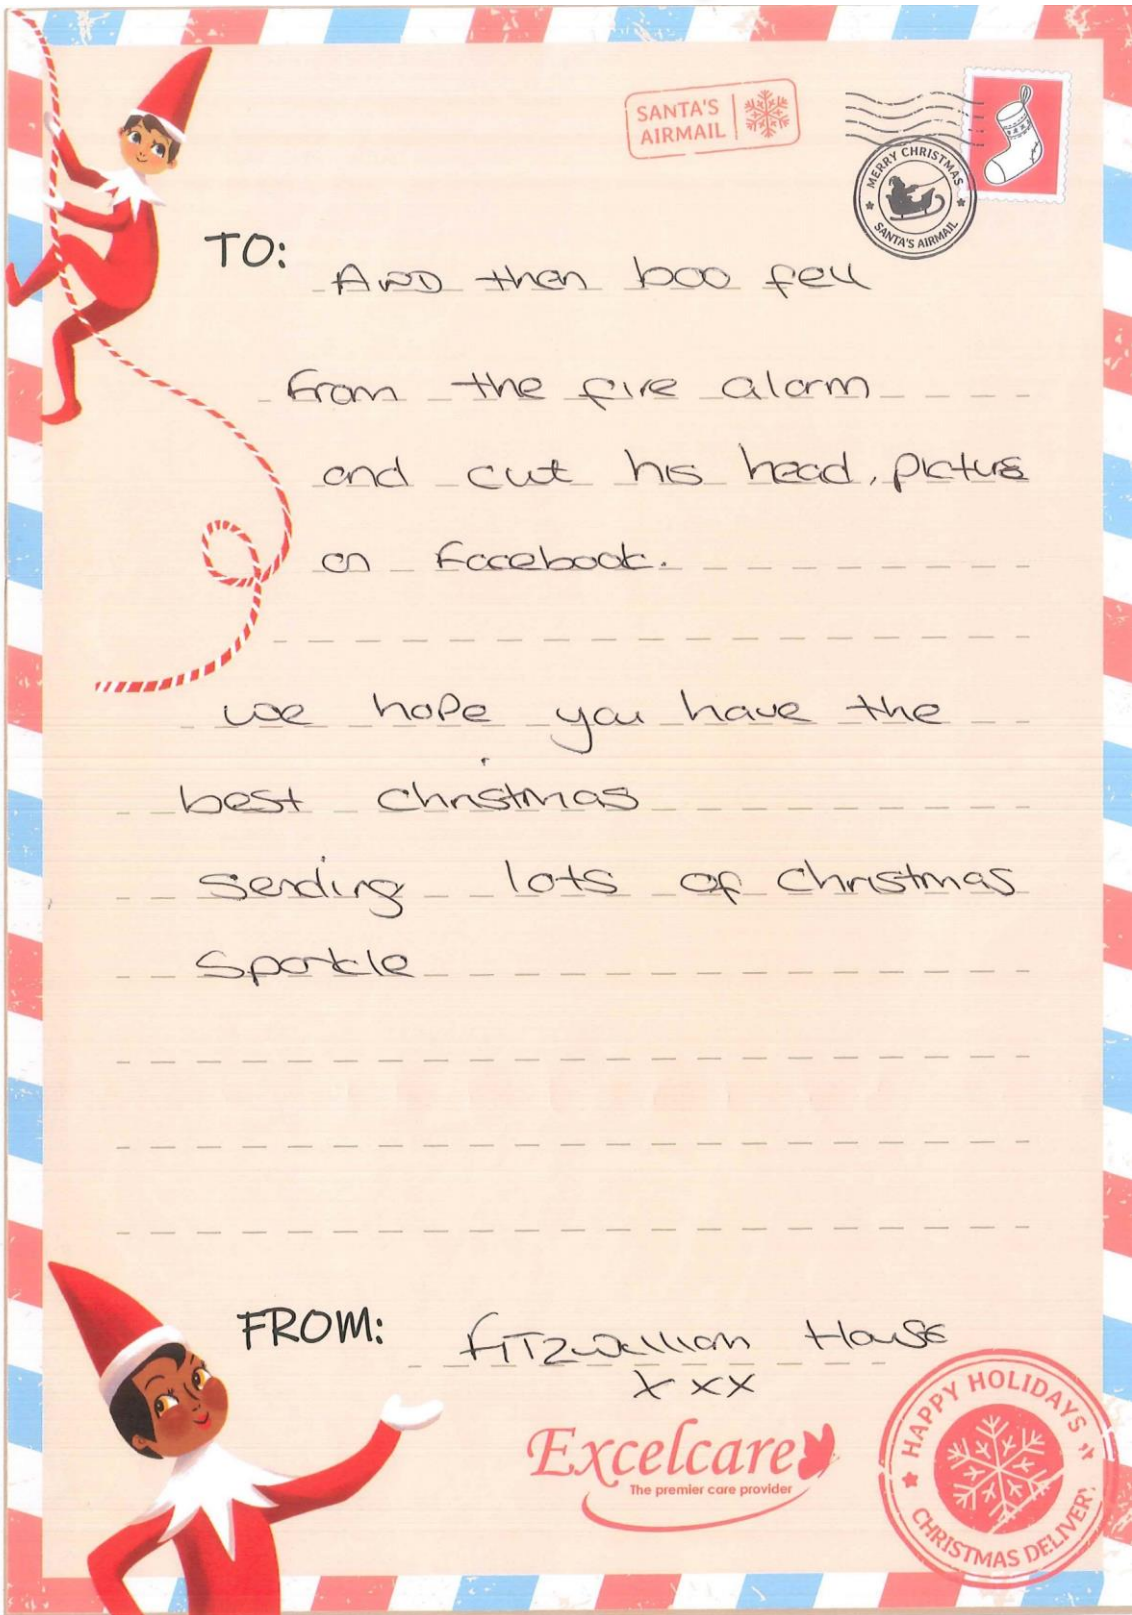 SANTA'S
AIRMAIL
MERRY CHRISTMAS
SANTA'S AIRMAIL
TO: AND then boo fell
From the fire alarm
and cut his head, picture
on Facebook.
we hope you have the
best christmas
sending lots of christmas
Sparkle
FROM: FITZwilliam House
xxx
Excelcare
The premier care provider
HAPPY HOLIDAYS
CHRISTMAS DELIVERY